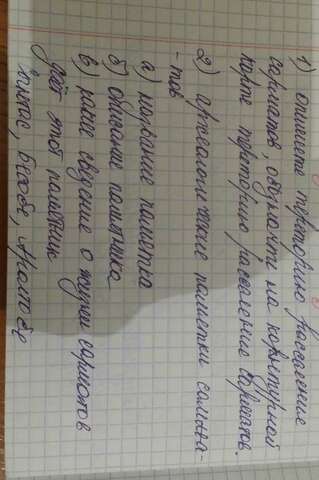 1) опишите территорию расселение
сарматов, обозначте на контурной
карте территорию расселение сарматов.
2) археологические памятки сарма-
-тов
а) название памятка
б) описание памятника
в) какие сведение о жизни сарматов
даёт этот памятник
Актас, Бесобе, Аралтобе